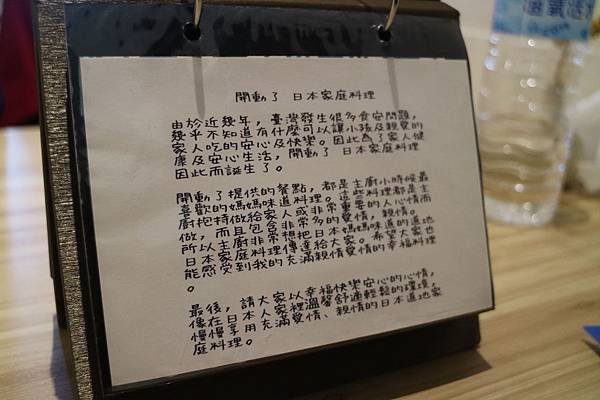 開動了 日本家庭料理
由於近幾年，臺灣發生很多食安問題，
幾乎不知道有什麼可以讓小孩及親愛的
家人吃的安心及快樂。因此為了家人健
康及安心生活，開動了 日本家庭料理
因此而誕生了。
開動了提供的餐點，都是主廚小時候最
喜歡的媽媽味道料理。這些料理都是主
廚抱持做給家人或非常重要的人心情而
做，而且包含非常多的愛情，親情。
所以主廚非常想把日本媽媽味道的道地
日本家庭料理傳達給大家。希望大家也
能感受到我的充滿親情愛情的幸福料理
。
最後，請大家以幸福快樂安心的心情，
像在日本人家裡溫馨舒適輕鬆的環境，
慢慢享用充滿愛情、親情的日本道地家
庭料理。